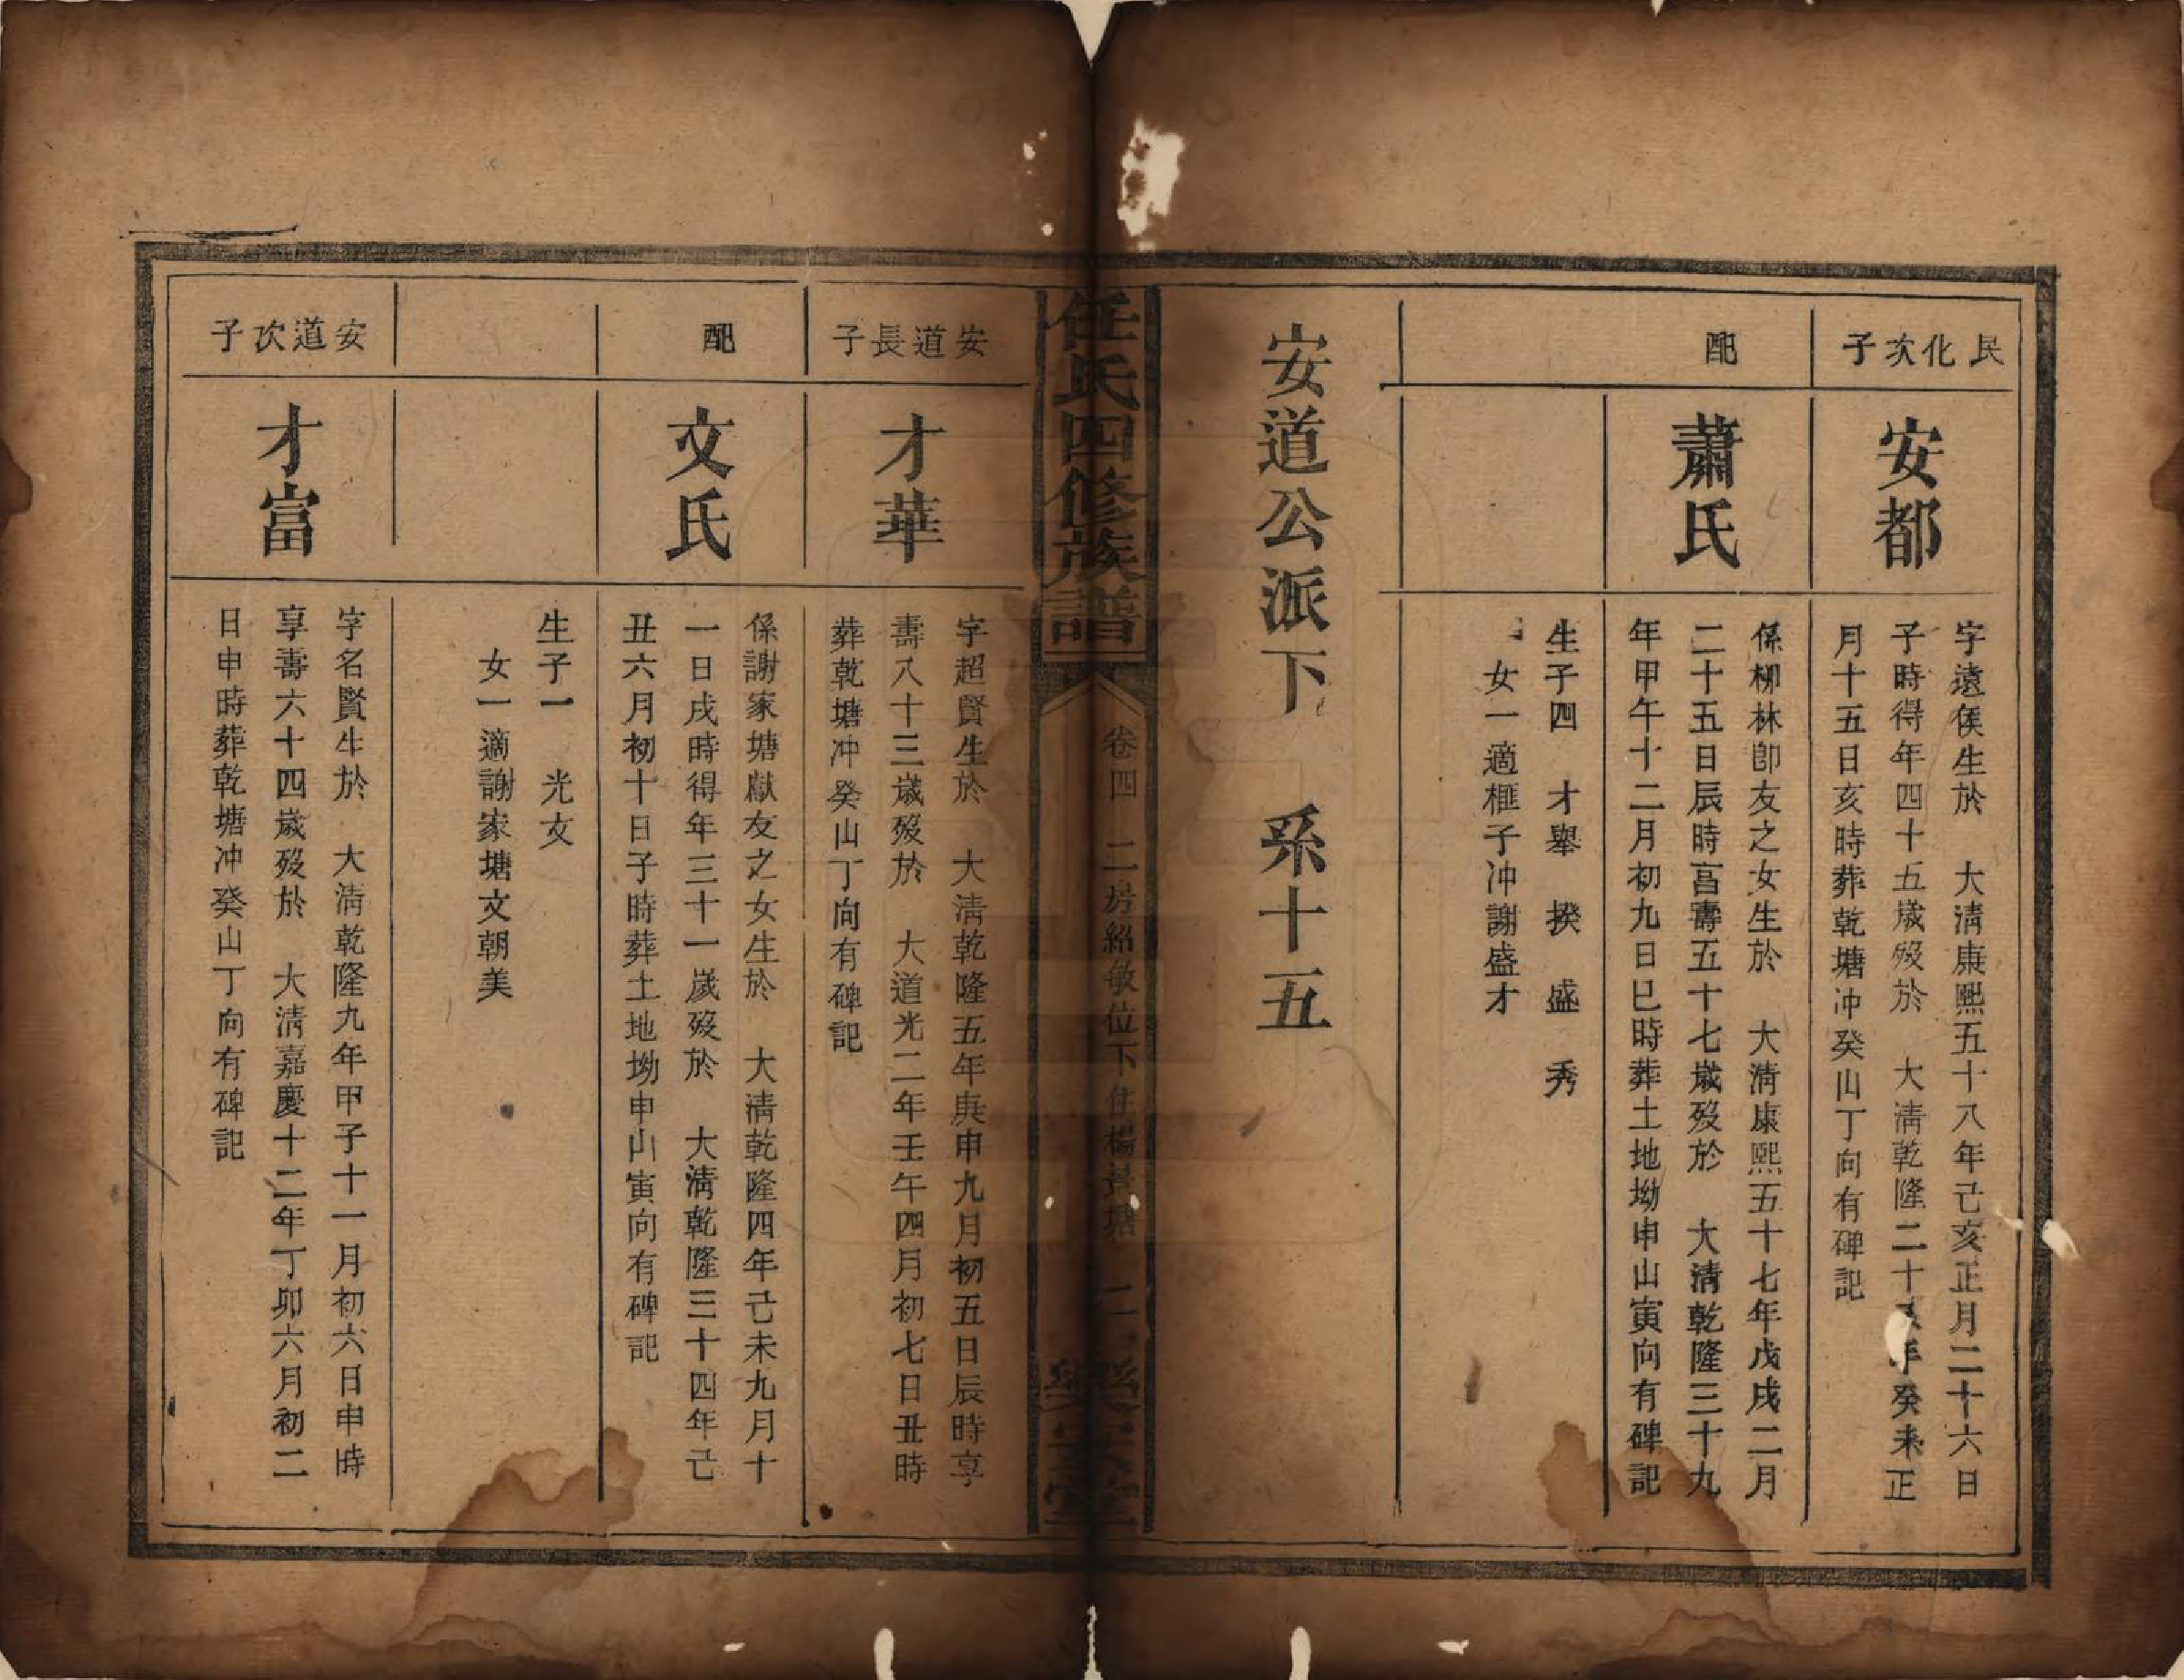 民化次子
安都
字遠侯生於　大清康熙五十八年己亥正月二十六日
子時得年四十五歲歿於　大清乾隆二十八年癸未正
月十五日亥時葬乾塘冲癸山丁向有碑記
配
蕭氏
係柳林卽友之女生於　大清康熙五十七年戊戌二月
二十五日辰時亯壽五十七歲歿於　大清乾隆三十九
年甲午十二月初九日巳時葬土地坳申山寅向有碑記
生子四　才舉　揆　盛　秀
女一適榧子冲謝盛才
安道公派下　系十五
任氏四修族譜
卷四　二房紹敏位下住楊景塘　二
樂安堂
安道長子
才華
字超賢生於　大清乾隆五年庚申九月初五日辰時享
壽八十三歲歿於　大道光二年壬午四月初七日丑時
葬乾塘冲癸山丁向有碑記
配
文氏
係謝家塘獻友之女生於　大清乾隆四年己未九月十
一日戌時得年三十一歲歿於　大清乾隆三十四年己
丑六月初十日子時葬土地坳申山寅向有碑記
生子一　光文
女一適謝家塘文朝美
安道次子
才富
字名賢生於　大清乾隆九年甲子十一月初六日申時
享壽六十四歲歿於　大清嘉慶十二年丁卯六月初二
日申時葬乾塘冲癸山丁向有碑記